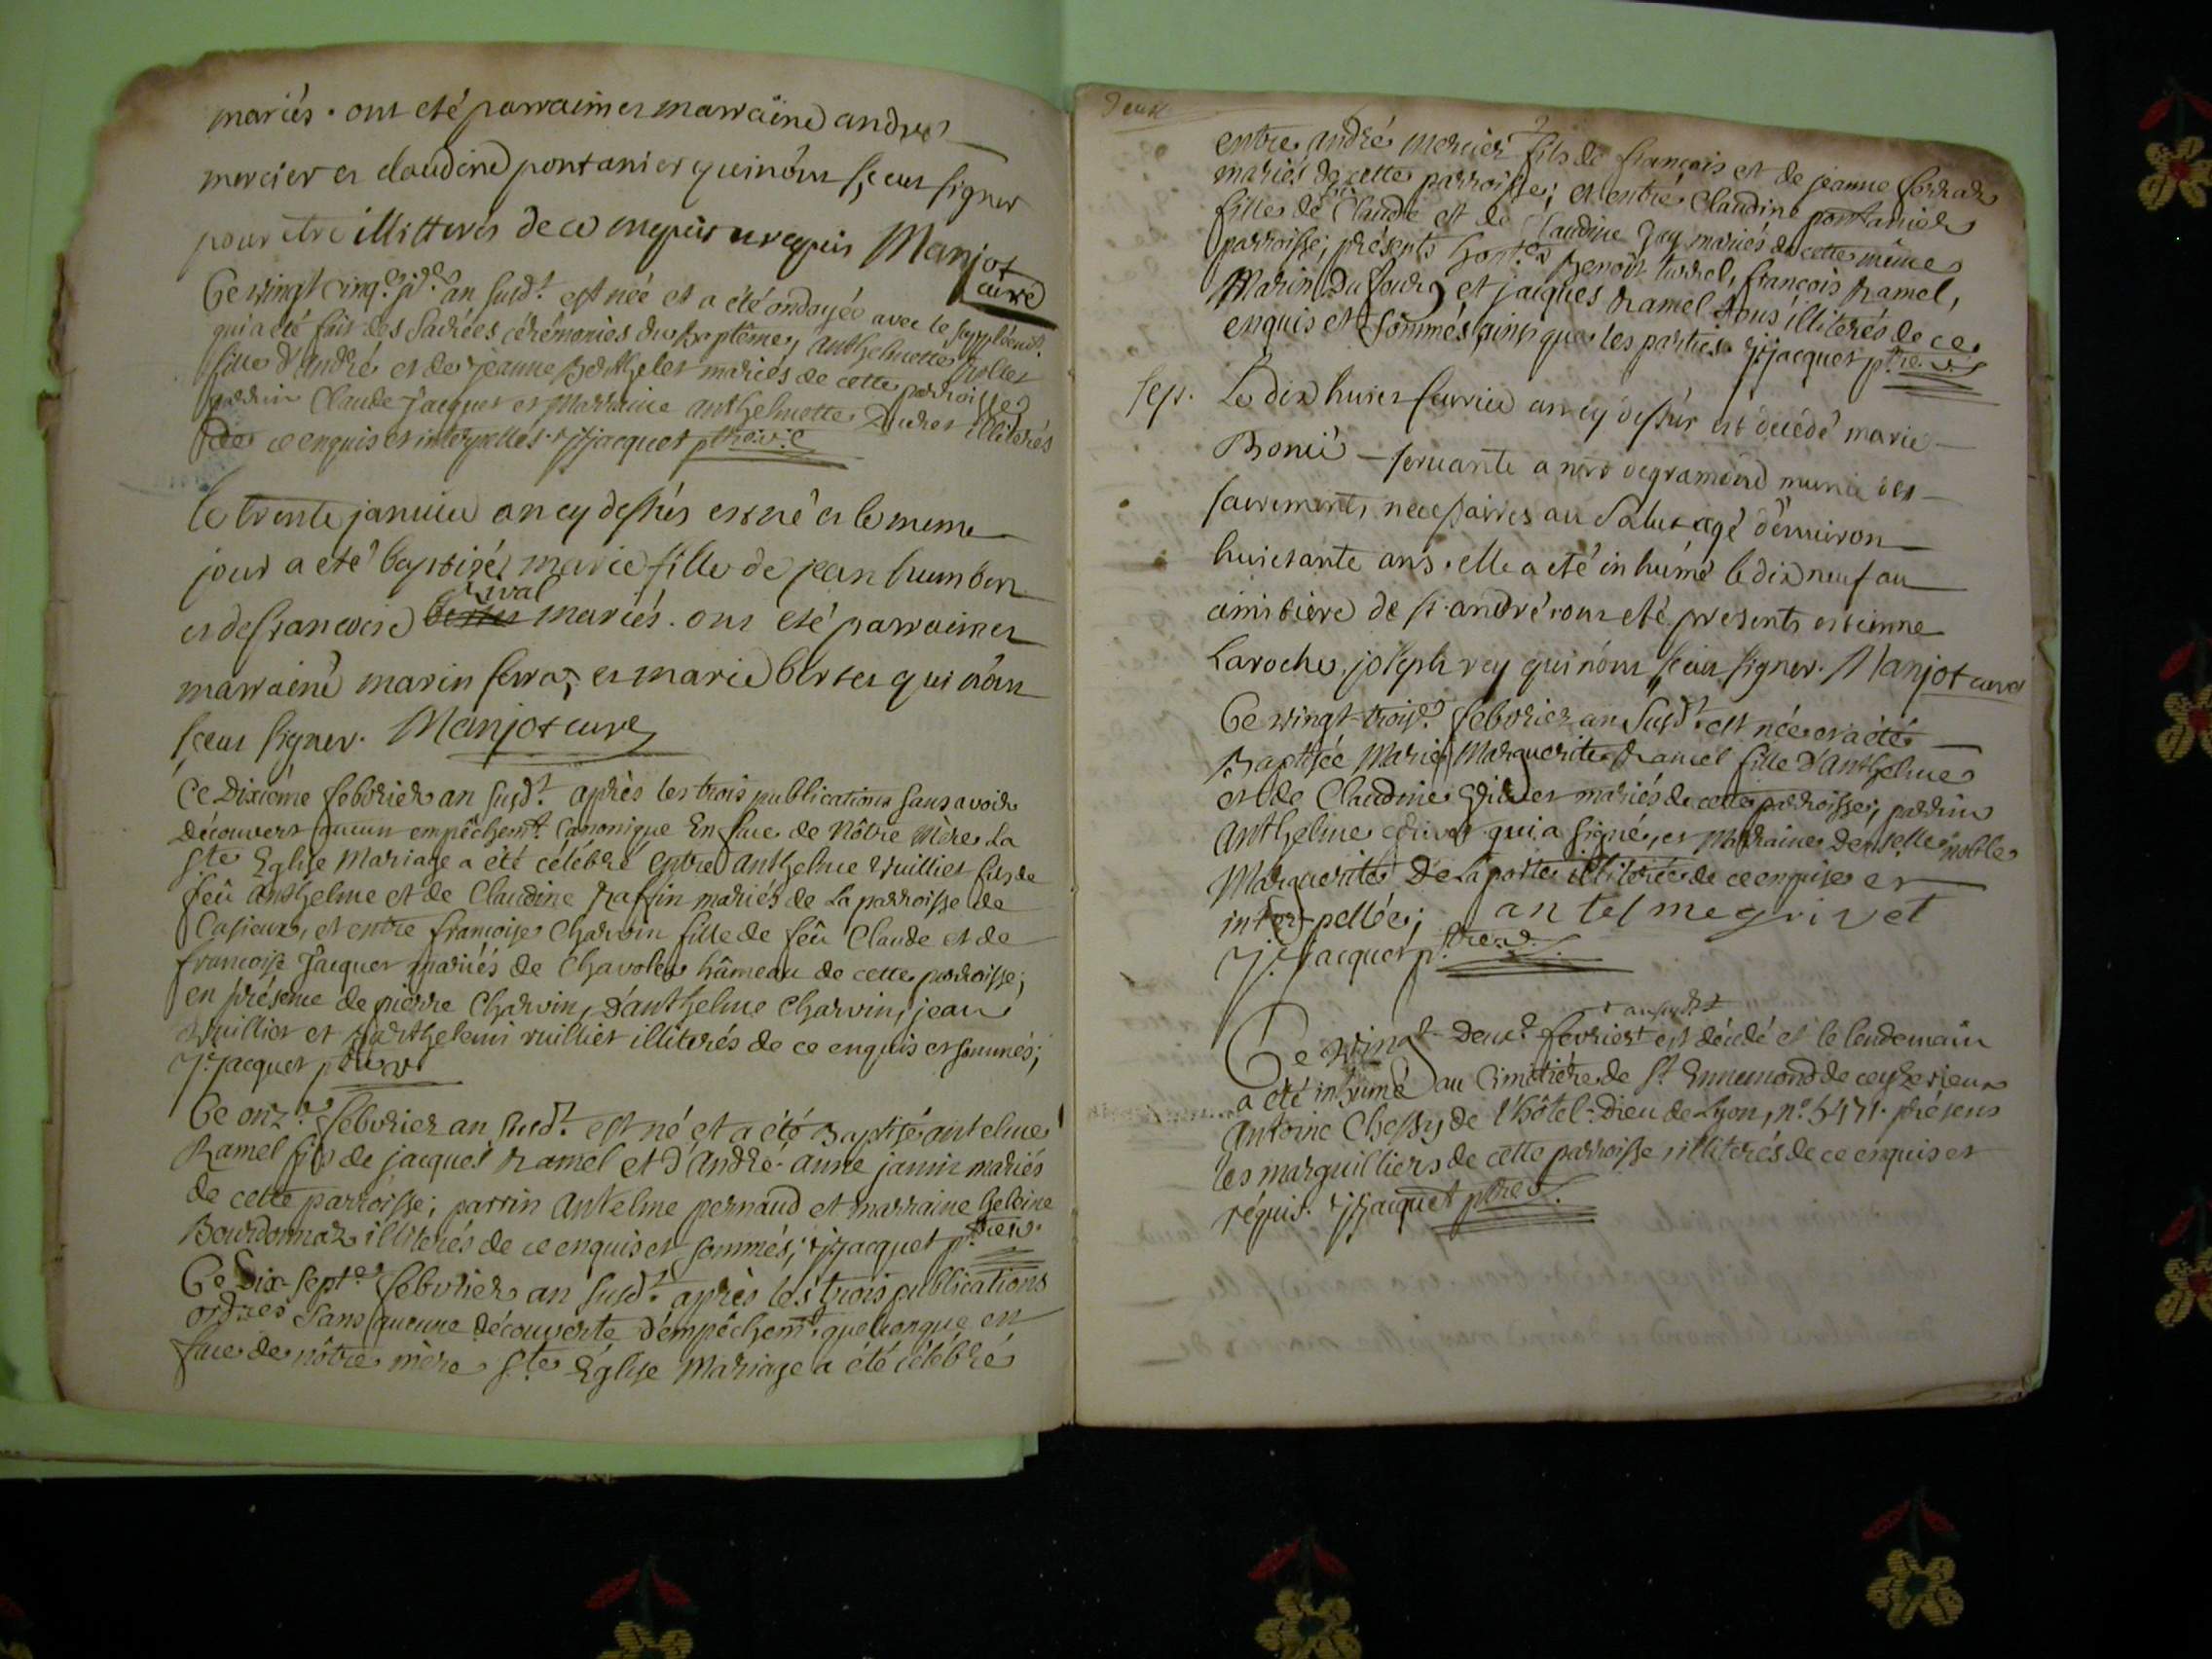 mariés. ont eté parrain et marraine andre
mercier et claudine pontanier qui nont sceut signer
pour etre illitterés de ce enquis et requis Manjot
curé
Ce vingt cinq.e j.er an susd.t est née et a été ondoyée avec le supplém.t
qui a été fait des Sacrées cérémonies du Baptême, Anthelmette
fille d'André et de jeanne Berthelet mariés de cette parroisse
parrin Claude Jacquet et Marraine Anthelmette illiterés
de ce enquis et interpellés. J. jacquet ptre v.
le trente janvier an cy dessus est né et le meme
jour a eté baptisé marie fille de jean humbert
rival
et de francoise mariés. ont eté parrain et
marraine marin ferraz et marie bertet qui n'ont
sceut signer. Manjot curé
Ce Dixième febvrier an susd.t après les trois publications sans avoir
découvert aucun empêchem.t Canonique En face de Nôtre Mère La
S.te Eglise Mariage a été célébré entre Anthelme Vuilliet fils de
feû Anthelme et de Claudine Raffin mariés de La parroisse de
Casieux, et entre francoise Charvin fille de feû Claude et de
francoise Jacquet mariés de Chavolet hâmeau de cette parroisse;
en présence de pierre Charvin, d'anthelme Charvin, jean
Vuilliet et Barthelemi vuilliet illiterés de ce enquis et sommés;
J. jacquet ptre v.
Ce onz.e febvrier an susd.t est né et a été Baptisé antelme
Ramel fils de jacques Ramel et d'André-anne janin mariés
de cette parroisse; parrin Antelme pernaud et marraine heleine
Bourdonnaz illiterés de ce enquis et sommés; J. jacquet p.tre v.
Ce Dix-sept.e febvrier an susd.t après les trois publications
ordres sans aucune découverte d'empêchem.t quelconque en
face de nôtre mère S.te Église Mariage a été célébré
Deux
entre andré mercier fils de françois et de jeanne ferraz
mariés de cette parroisse; et entre Claudine pontanier
fille de Claude et de Claudine Jay mariés de cette même
parroisse; présents Benoît turrel, françois Ramel,
Marin Dufour et jacques Ramel tous illiterés de ce
enquis et sommés ainsi que les parties. J. jacquet p.tre v.
sep. Le dix huict fevrier an cy dessus est décédé marie
Bonié servante a degramond munie des
sacrements necessaires au Salut agé d'environ
huictante ans. elle a eté inhumé le dix neuf au
cimitière de st. andré. ont eté presents estienne
Laroche, joseph rey qui n'ont sceut signer. Manjot curé
Ce vingt-trois.e febvrier an susd.t est née et a été
Baptisée Marie Marguerite Ramel fille d'Anthelme
et de Claudine Grivet mariés de cette parroisse, parrin
Anthelme Grivet qui a signé, et Marraine demselle noble
Marguerite De Laporte illiterée de ce enquise et
interpellée; antelme grivet
J. Jacquet p.tre v.
+ an susd.t
Ce vingt-Deux.e fevrier + est décédé et le lendemain
a été inhumé au Cimetière de S.t Ennemond de ceyzerieux
Antoine Chessy de l'hôtel-Dieu de Lyon, n.o 5471. présens
les marguilliers de cette parroisse illiterés de ce enquis et
réquis. J. Jacquet ptre v.